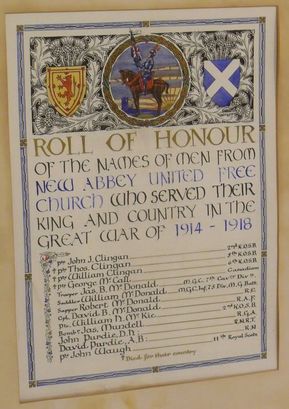 ROLL OF HONOUR
OF THE NAMES OF MEN FROM
NEW ABBEY UNITED FREE
CHURCH WHO SERVED THEIR
KING AND COUNTRY IN THE
GREAT WAR OF 1914 - 1918
Pte John J. Clingan 2nd K.O.S.B.
Pte Thos. Clingan 5th K.O.S.B.
Pte William Clingan 6th K.O.S.B.
Pte George Mc Call Canadian
Trooper Jas. B. McDonald M.G.C. 7th Cav Div
Saddler William McDonald M.G.C. Inf. 75 Div. M.G. Batt
Sapper Robert McDonald R.E.
Cpl. David B. McDonald R.A.F.
Pte. William H. McKie 2nd K.O.S.B.
Bomb Jas. Mundell R.G.A.
John Purdie, D.H. R.N.R.T.
David Purdie, A.B. R.N.
Pte John Waugh 11th Royal Scots
Died for their country